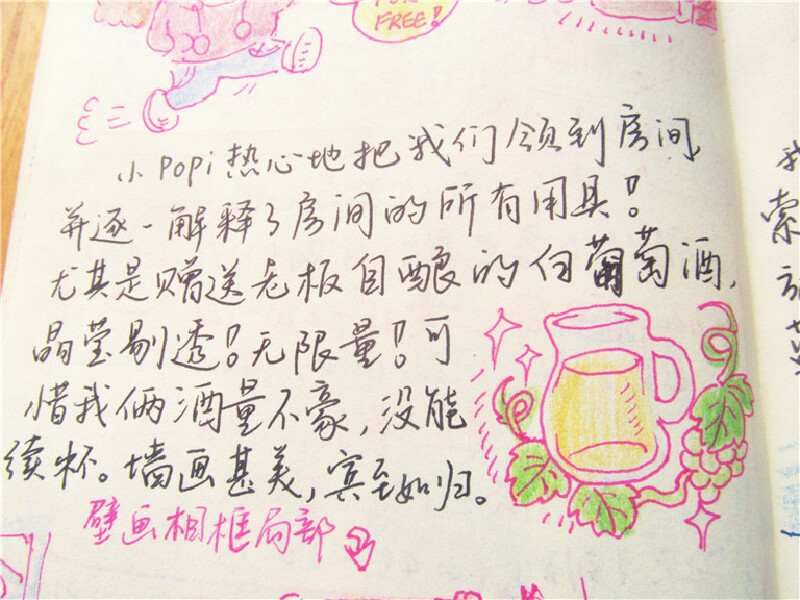 FREE!
小Popi热心地把我们领到房间,
并逐一解释了房间的所有用具!
尤其是赠送老板自酿的白葡萄酒,
晶莹剔透!无限量!可
惜我俩酒量不豪,没能
续杯。墙画甚美,宾至如归。
壁画相框局部